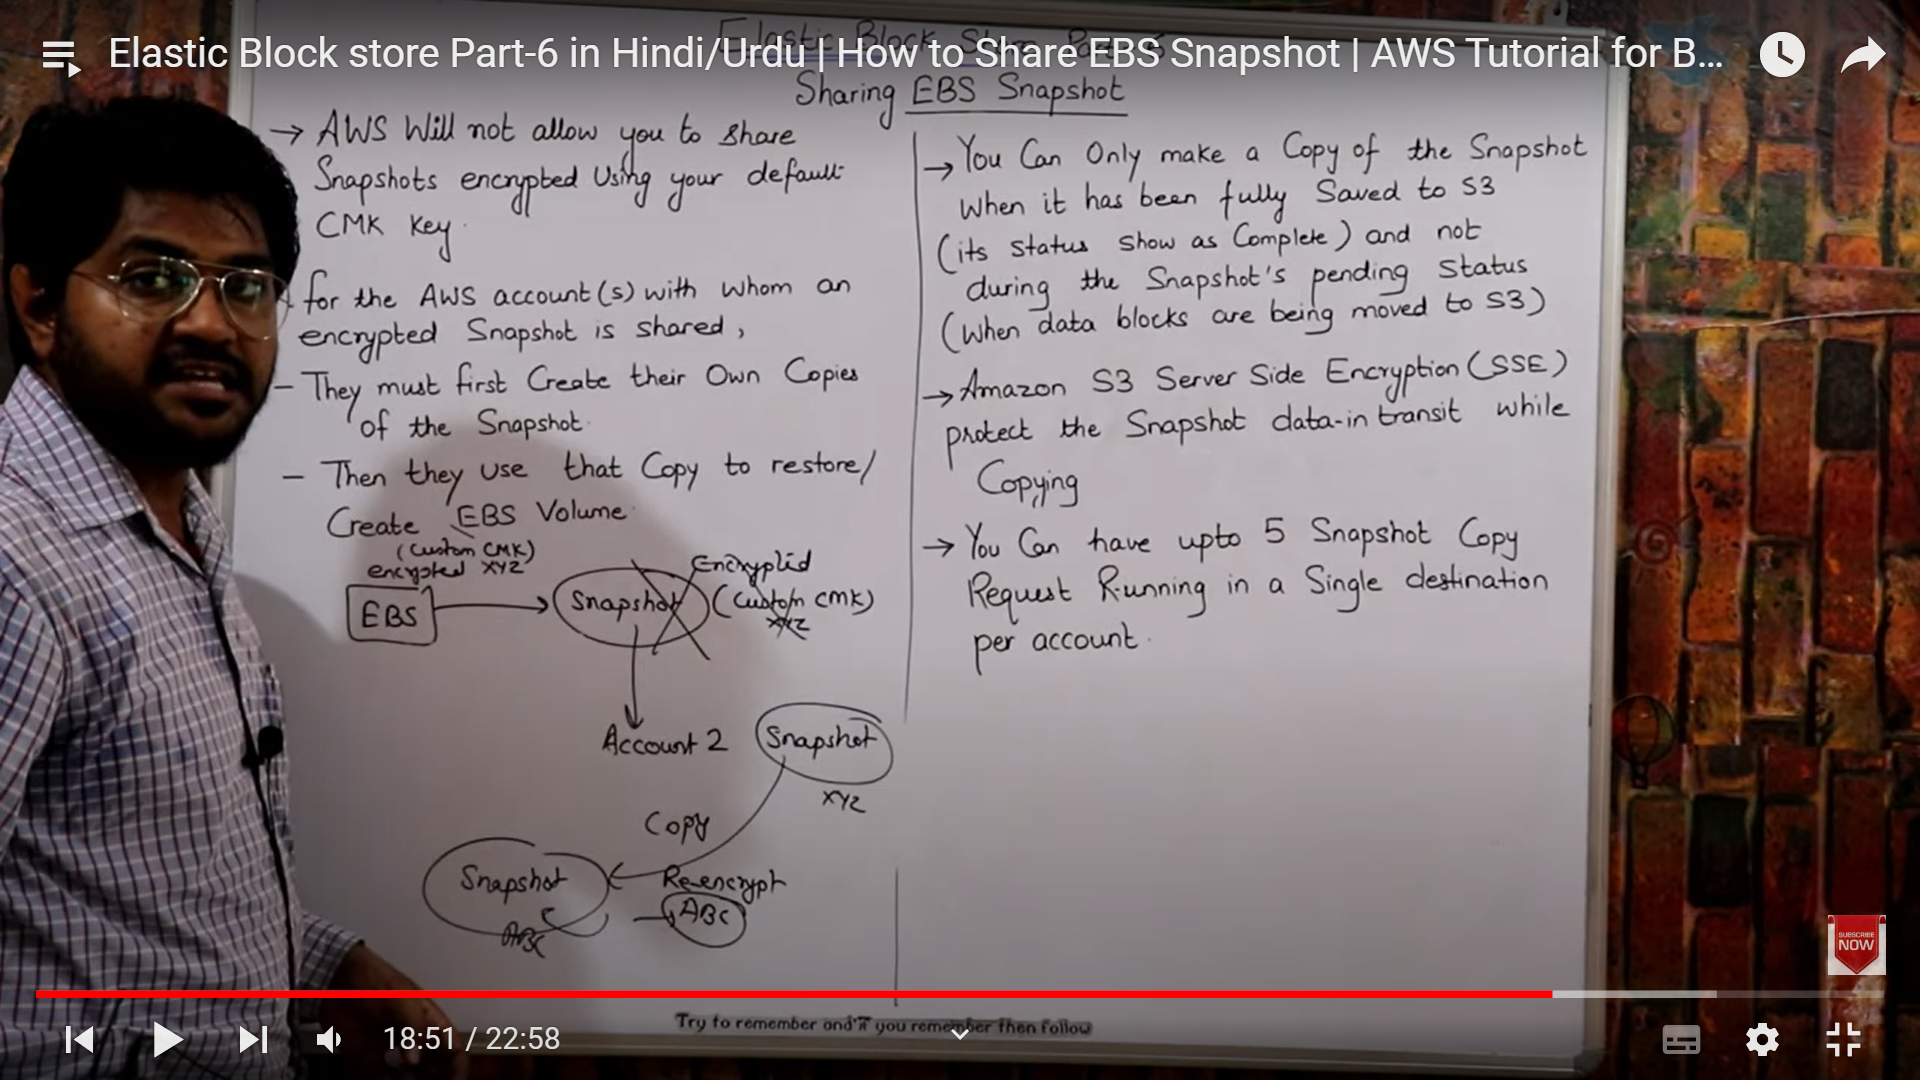 Elastic Block store Part-6 in Hindi/Urdu | How to Share EBS Snapshot | AWS Tutorial for B...
Elastic Block Store Part-6
Sharing EBS Snapshot
→ AWS Will not allow you to share
Snapshots encrypted Using your default
CMK Key.
for the AWS account(s) with whom an
encrypted Snapshot is shared,
- They must first Create their Own Copies
of the Snapshot.
- Then they use that Copy to restore/
Create EBS Volume.
(Custom CMK)
encrypted XYZ
EBS
Snapshot
Encryptid
(Custom CMK)
XYZ
Account 2
Snapshot
XYZ
Copy
Snapshot
Re-encrypt
ABC
ABC
→ You Can Only make a Copy of the Snapshot
When it has been fully Saved to S3
(its status show as Complete) and not
during the Snapshot's pending Status
(when data blocks are being moved to S3)
→ Amazon S3 Server Side Encryption (SSE)
protect the Snapshot data-in transit while
Copying
→ You Can have upto 5 Snapshot Copy
Request Running in a Single destination
per account.
SUBSCRIBE
NOW
Try to remember and if you remember then follow
18:51 / 22:58